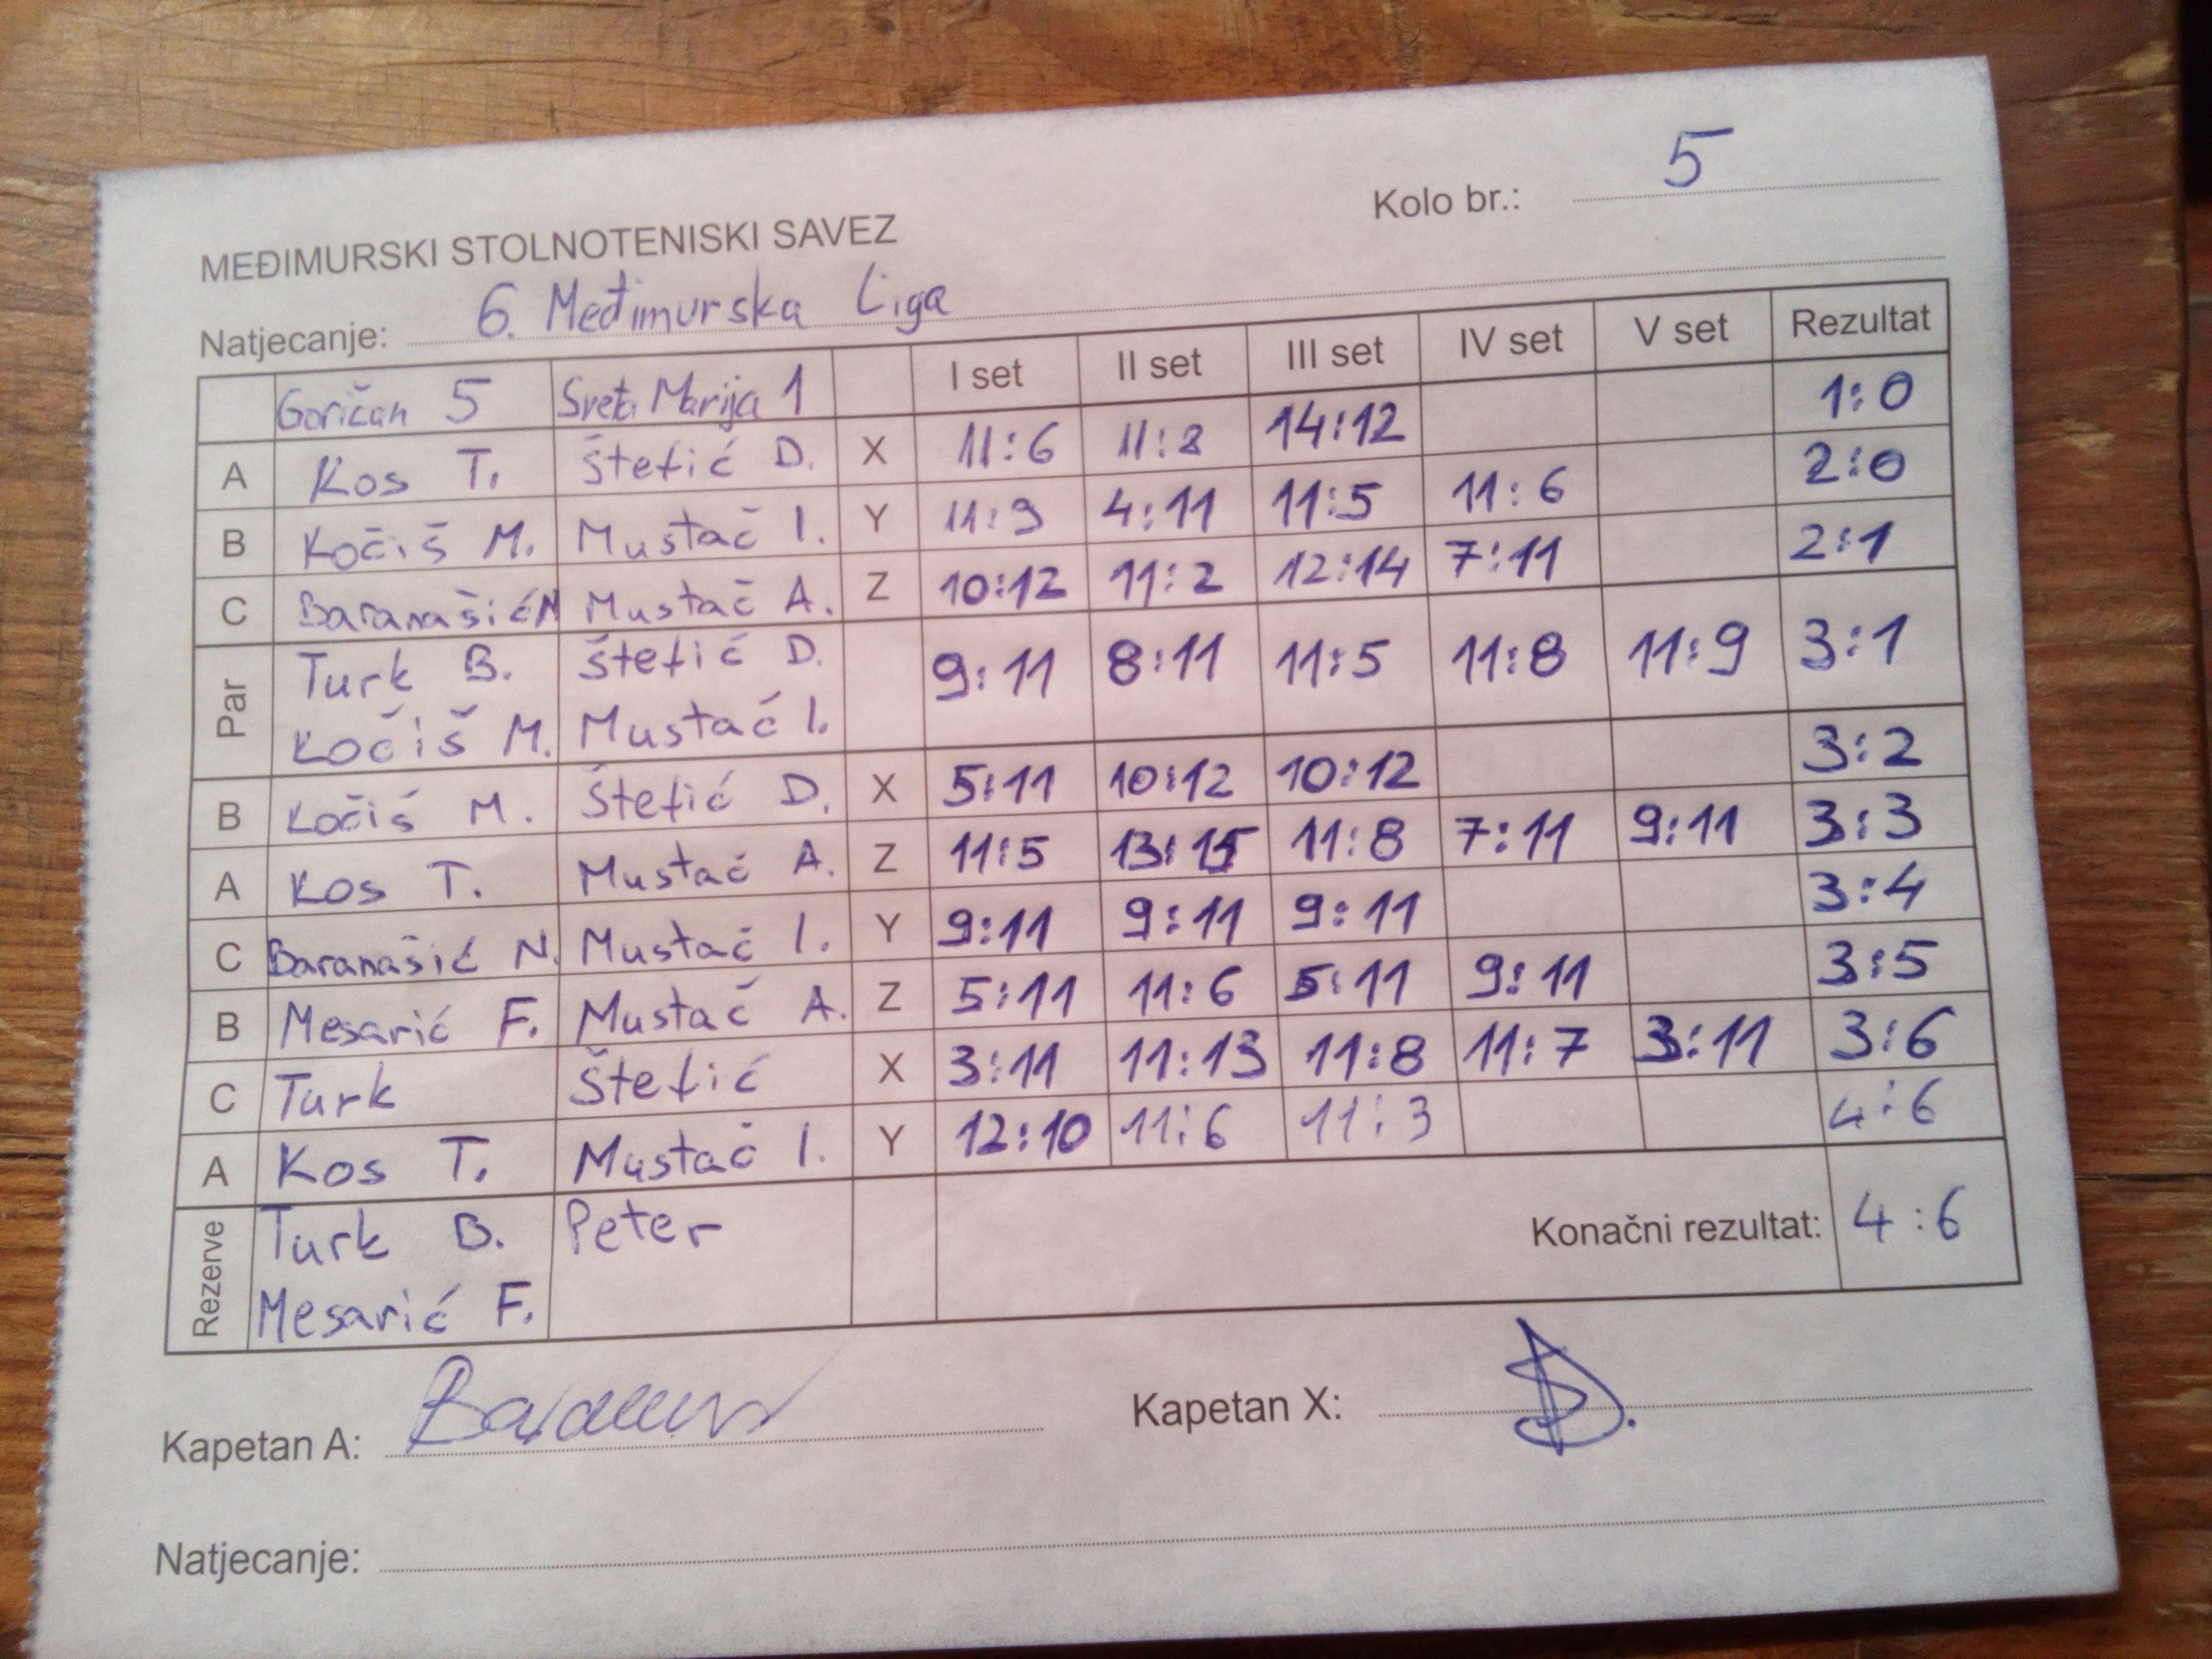 Kolo br.: 5
MEĐIMURSKI STOLNOTENISKI SAVEZ
Natjecanje: 6. Međimurska Liga
Goričan 5 Sveta Marija 1 I set II set III set IV set V set Rezultat
A Kos T. Štefić D. X 11:6 11:8 14:12 1:0
B Kočiš M. Mustač I. Y 11:9 4:11 11:5 11:6 2:0
C Baranašić N Mustač A. Z 10:12 11:2 12:14 7:11 2:1
Par Turk B. Štefić D. 9:11 8:11 11:5 11:8 11:9 3:1
Kočiš M. Mustač I.
B Kočiš M. Štefić D. X 5:11 10:12 10:12 3:2
A Kos T. Mustač A. Z 11:5 13:15 11:8 7:11 9:11 3:3
C Baranašić N. Mustač I. Y 9:11 9:11 9:11 3:4
B Mesarić F. Mustač A. Z 5:11 11:6 5:11 9:11 3:5
C Turk Štefić X 3:11 11:13 11:8 11:7 3:11 3:6
A Kos T. Mustač I. Y 12:10 11:6 11:3 4:6
Rezerve Turk B. Peter Konačni rezultat: 4:6
Mesarić F.
Kapetan A: Kapetan X:
Natjecanje: